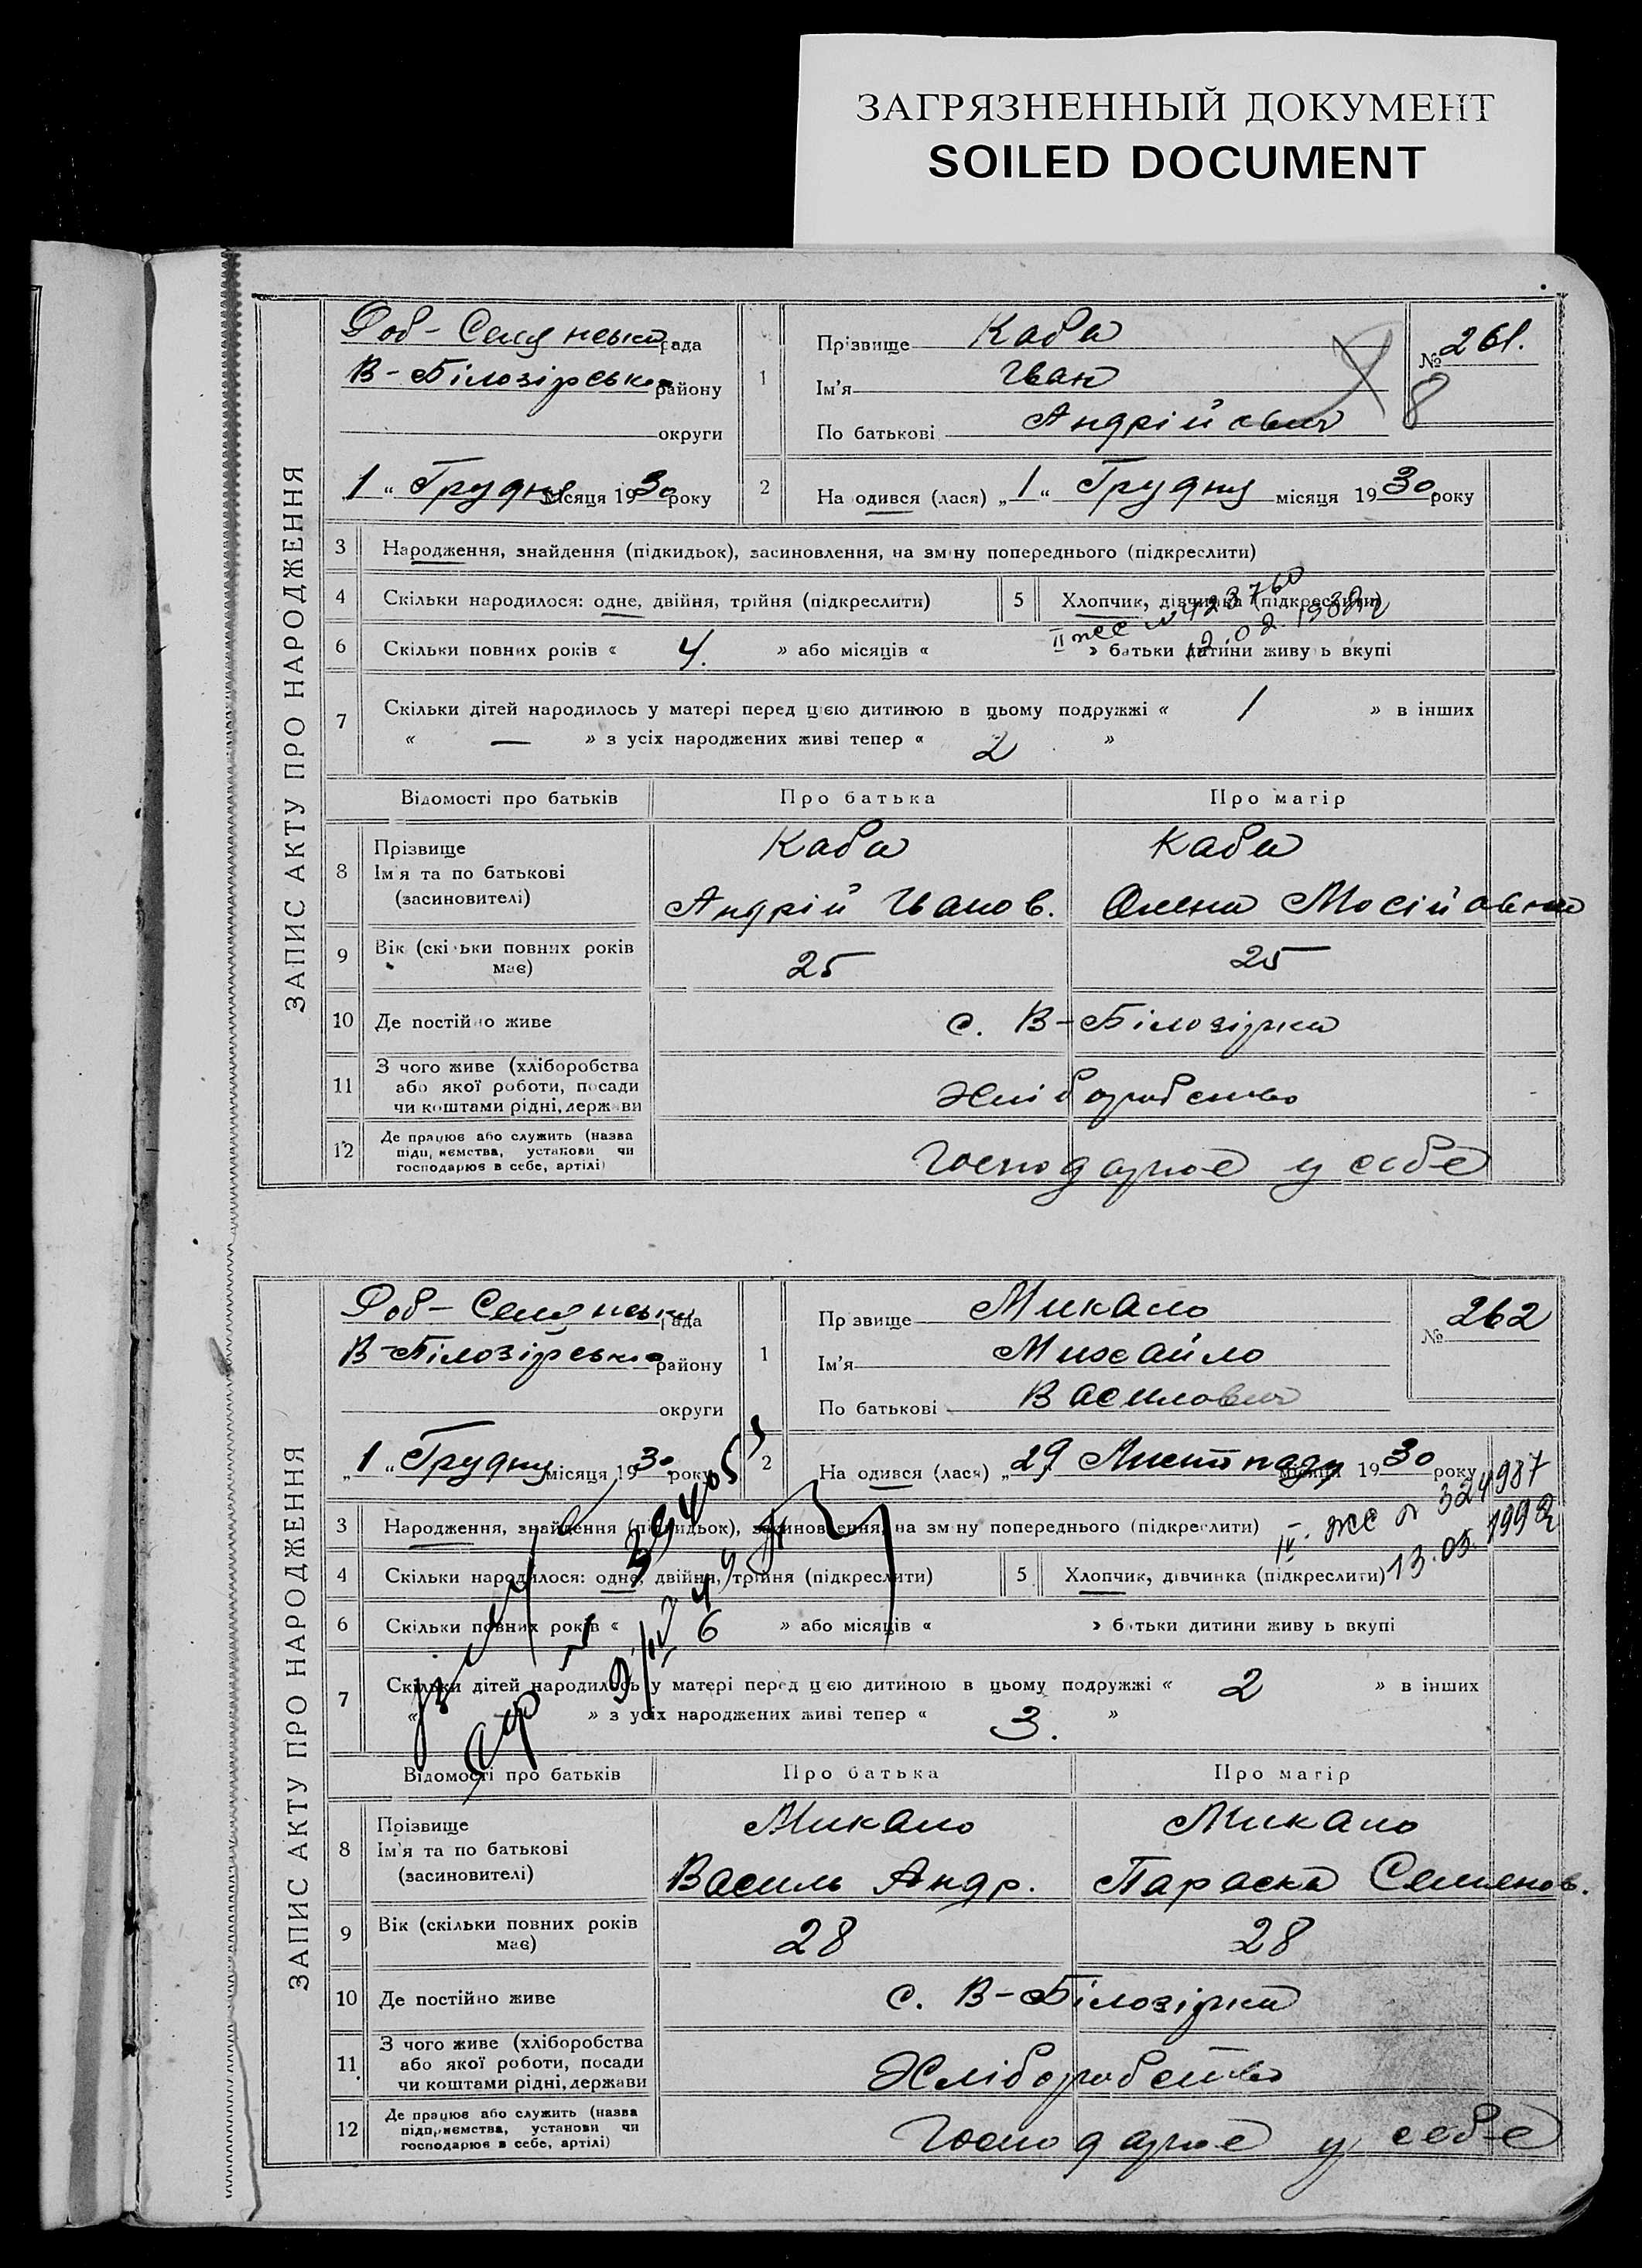 ЗАГРЯЗНЕННЫЙ ДОКУМЕНТ
SOILED DOCUMENT
ЗАПИС АКТУ ПРО НАРОДЖЕННЯ
рада
В-Білозірсько району
округи
1 " Грудня місяця 1930 року
1
Прізвище Каба
Ім'я Іван
По батькові Андрійович
№ 261.
8
2
На одився (лася) „1“ Грудня місяця 1930 року
3 Народження, знайдення (підкидьок), засиновлення, на зміну попереднього (підкреслити)
4 Скільки народилося: одне, двійня, трійня (підкреслити) 5 Хлопчик, дівчинка (підкреслити)
12.02.1982
6 Скільки повних років « 4. » або місяців « » батьки дитини живуть вкупі
7 Скільки дітей народилось у матері перед цією дитиною в цьому подружжі « 1 » в інших
« — » з усіх народжених живі тепер « 2 »
Відомості про батьків Про батька Про матір
8 Прізвище
Ім'я та по батькові
(засиновителі)
Каба
Андрій Іванов.
Каба
Олена Мосійовна
9 Вік (скільки повних років має) 25 25
10 Де постійно живе с. В-Білозірка
11 З чого живе (хліборобства
або якої роботи, посади
чи коштами рідні, держави
Хліборобство
12 Де працює або служить (назва
підприємства, установи чи
господарює в себе, артілі)
Господарює у себе
ЗАПИС АКТУ ПРО НАРОДЖЕННЯ
рада
В-Білозірсько району
округи
„1“ Грудня місяця 1930 року
1
Прізвище Микало
Ім'я Михайло
По батькові Василович
№ 262
2
На одився (лася) „29 Листопаду місяця 1930 року
3 Народження, знайдення (підкидьок), засиновлення, на зміну попереднього (підкреслити)
IV-ЖС № 324987
13.05.1992
4 Скільки народилося: одне, двійня, трійня (підкреслити) 5 Хлопчик, дівчинка (підкреслити)
6 Скільки повних років « 6 » або місяців « » батьки дитини живуть вкупі
7 Скільки дітей народилось у матері перед цією дитиною в цьому подружжі « 2 » в інших
« » з усіх народжених живі тепер « 3. »
Відомості про батьків Про батька Про матір
8 Прізвище
Ім'я та по батькові
(засиновителі)
Микало
Василь Андр.
Микало
Параска Семенов.
9 Вік (скільки повних років має) 28 28
10 Де постійно живе с. В-Білозірка
11 З чого живе (хліборобства
або якої роботи, посади
чи коштами рідні, держави
Хліборобство
12 Де працює або служить (назва
підприємства, установи чи
господарює в себе, артілі)
Господарює у себе